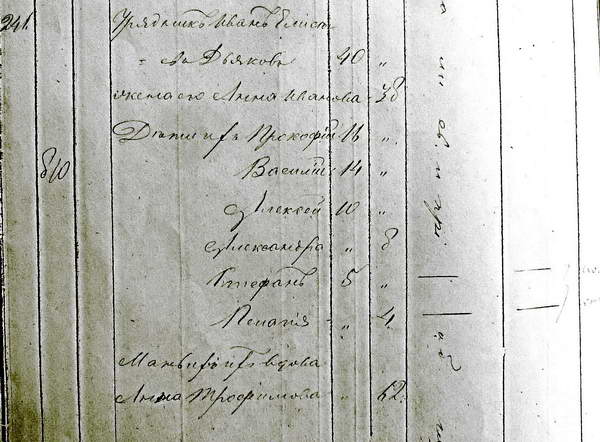 241. Урядникъ Иванъ Елисе
= евъ Дьяковъ 40 „
жена его Анна Иванова - 38
Дети ихъ Прокофій 16 „
Василій 14 „
610
Алексей 10 „
Александра „ 8
Стефанъ 5 „
Пелагія - „ 4
Мать ихъ вдова
Анна Трофимова „ 62.